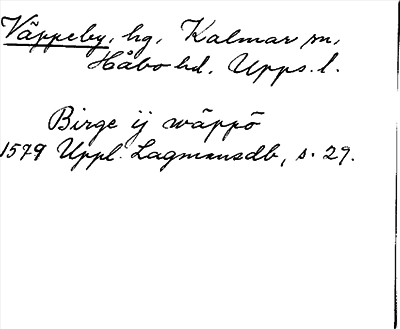 Väppeby, hg, Kalmar sn,
Håbo hd. Upps. l.
Birge ij wäppö
1579 Uppl. Lagmansdb, s. 29.